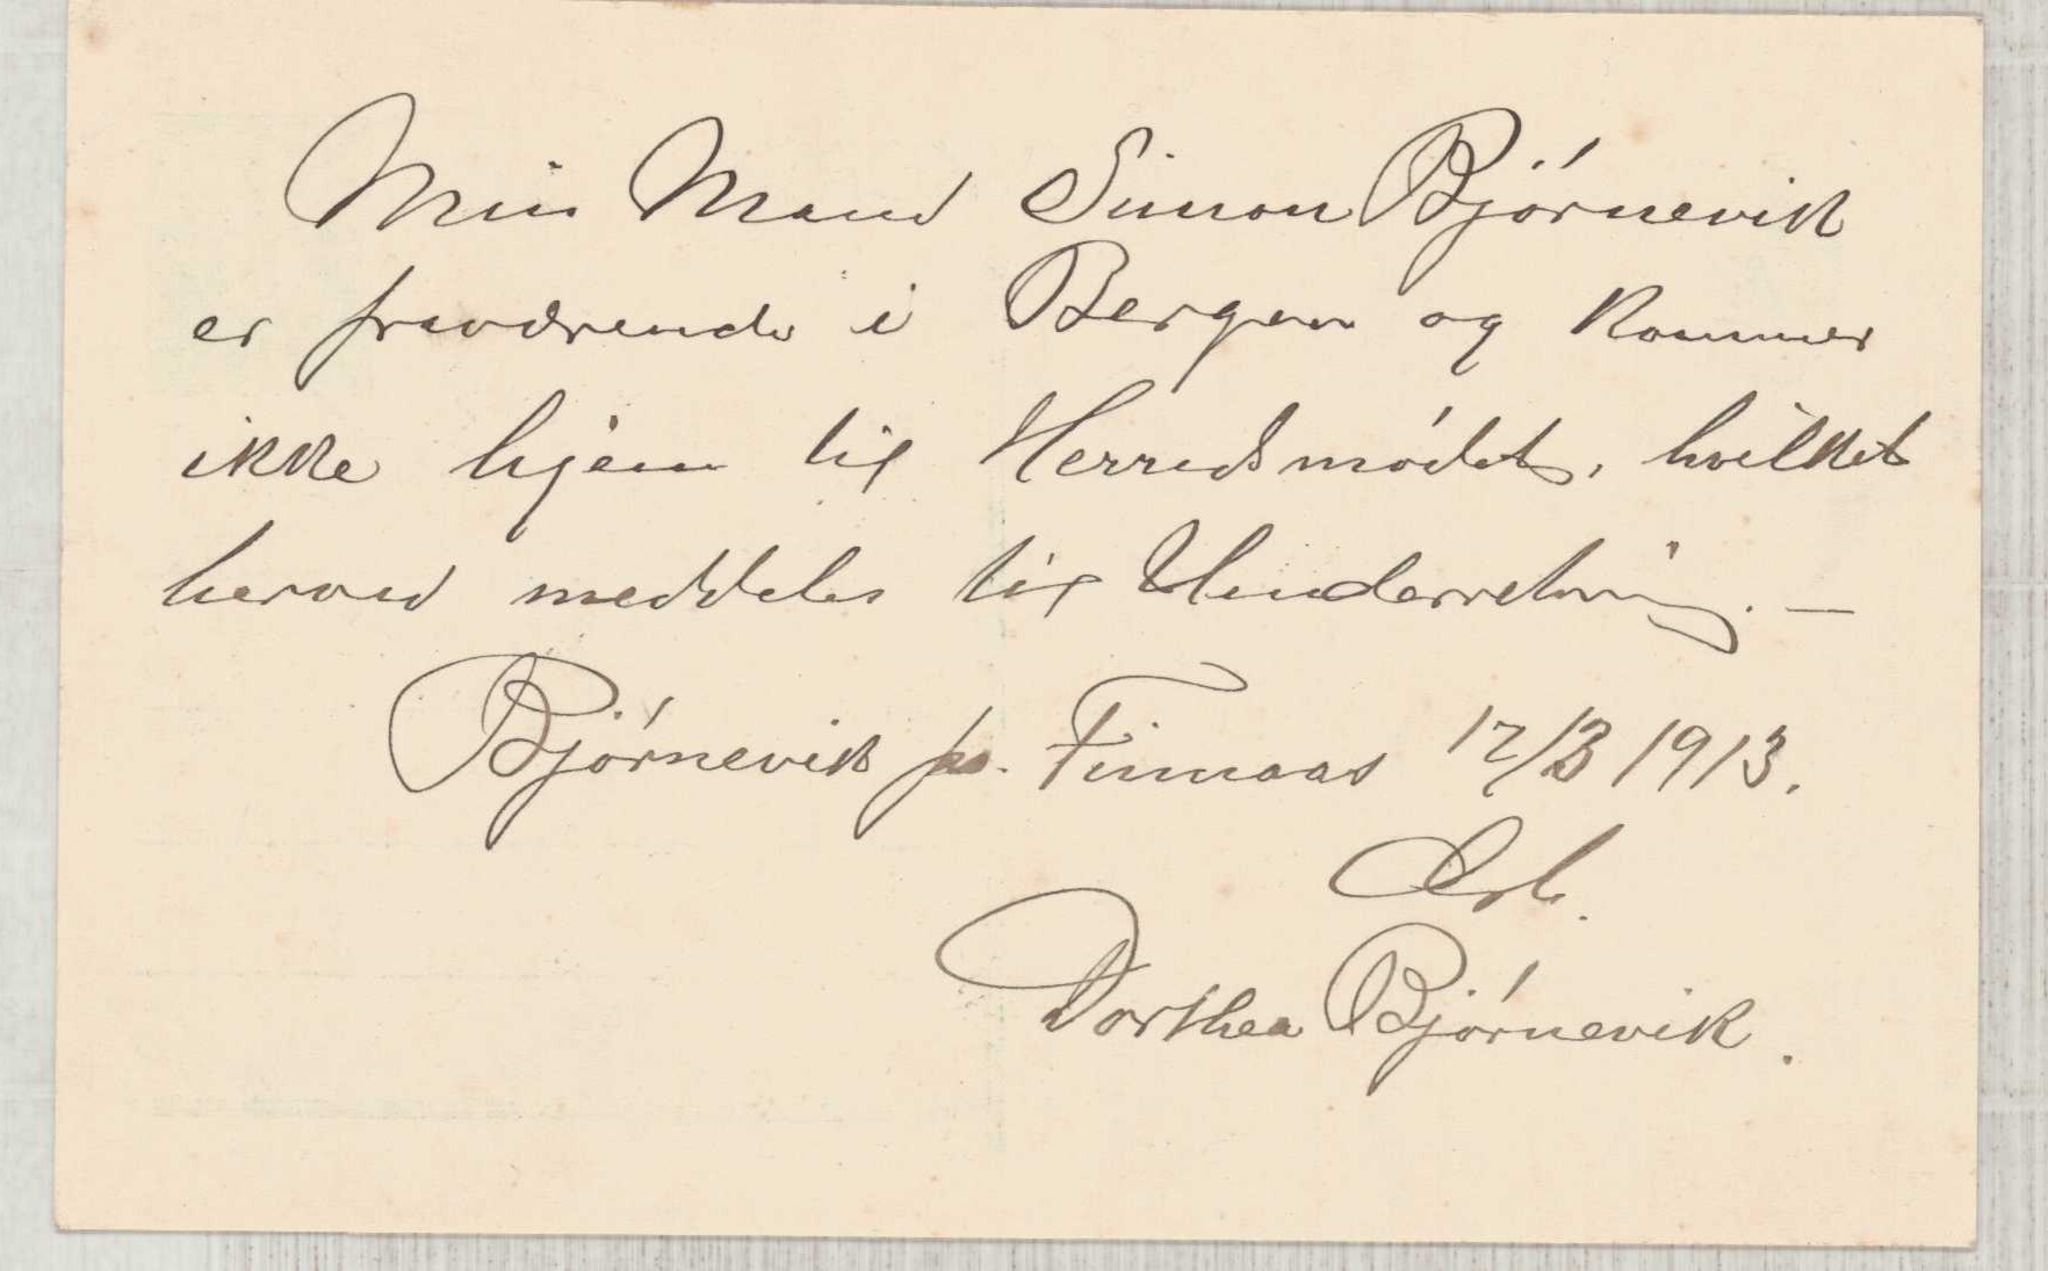 Min Mand Simon Bjørnevik
er fraværende i Bergen og kommer
ikke hjem til Herredsmødet, hvilket
herved meddeles til Underretning. —
Bjørnevik po. Finnaas 17/3 1913.
Ærb.
Dorthea Bjørnevik.